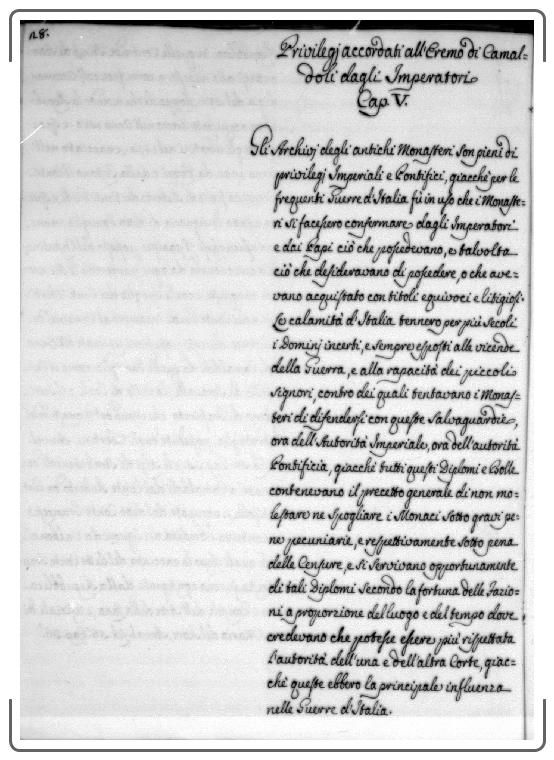 128.
Privilegj accordati all'Eremo di Camal=
doli dagli Imperatori
Cap. V.
Gli Archivj degli antichi Monasteri son pieni di
privilegj Imperiali e Pontificj, giacchi per le
frequenti Guerre d'Italia fù in uso che i Monaste=
ri si facessero confermare dagli Imperatori
e dai Papi ciò che possedevano, e talvolta
ciò che desideravano di possedere, o che ave=
vano acquistato con titoli equivoci e litigiosi.
Le calamità d'Italia tennero per più secoli
i Dominj incerti, e sempre esposti alle vicende
della Guerra, e alla rapacità dei piccoli
Signori, contro dei quali tentavano i Monas=
teri di difendersi con queste Salvaguardie,
ora dell'Autorità Imperiale, ora dell'autorità
Pontificia, giacchi tutti questi Diplomi e Bolle
contenevano il precetto generale di non mo=
lestare ne spogliare i Monaci sotto gravi pe=
ne pecuniarie, e respettivamente sotto pena
delle Censure, e si servivano opportunamente
di tali Diplomi secondo la fortuna delle Fazio=
ni a proporzione del luogo e del tempo dove
credevano che potesse essere più rispettata
l'autorità dell'una e dell'altra Corte, giac=
chè queste ebbero la principale influenza
nelle Guerre d'Italia.